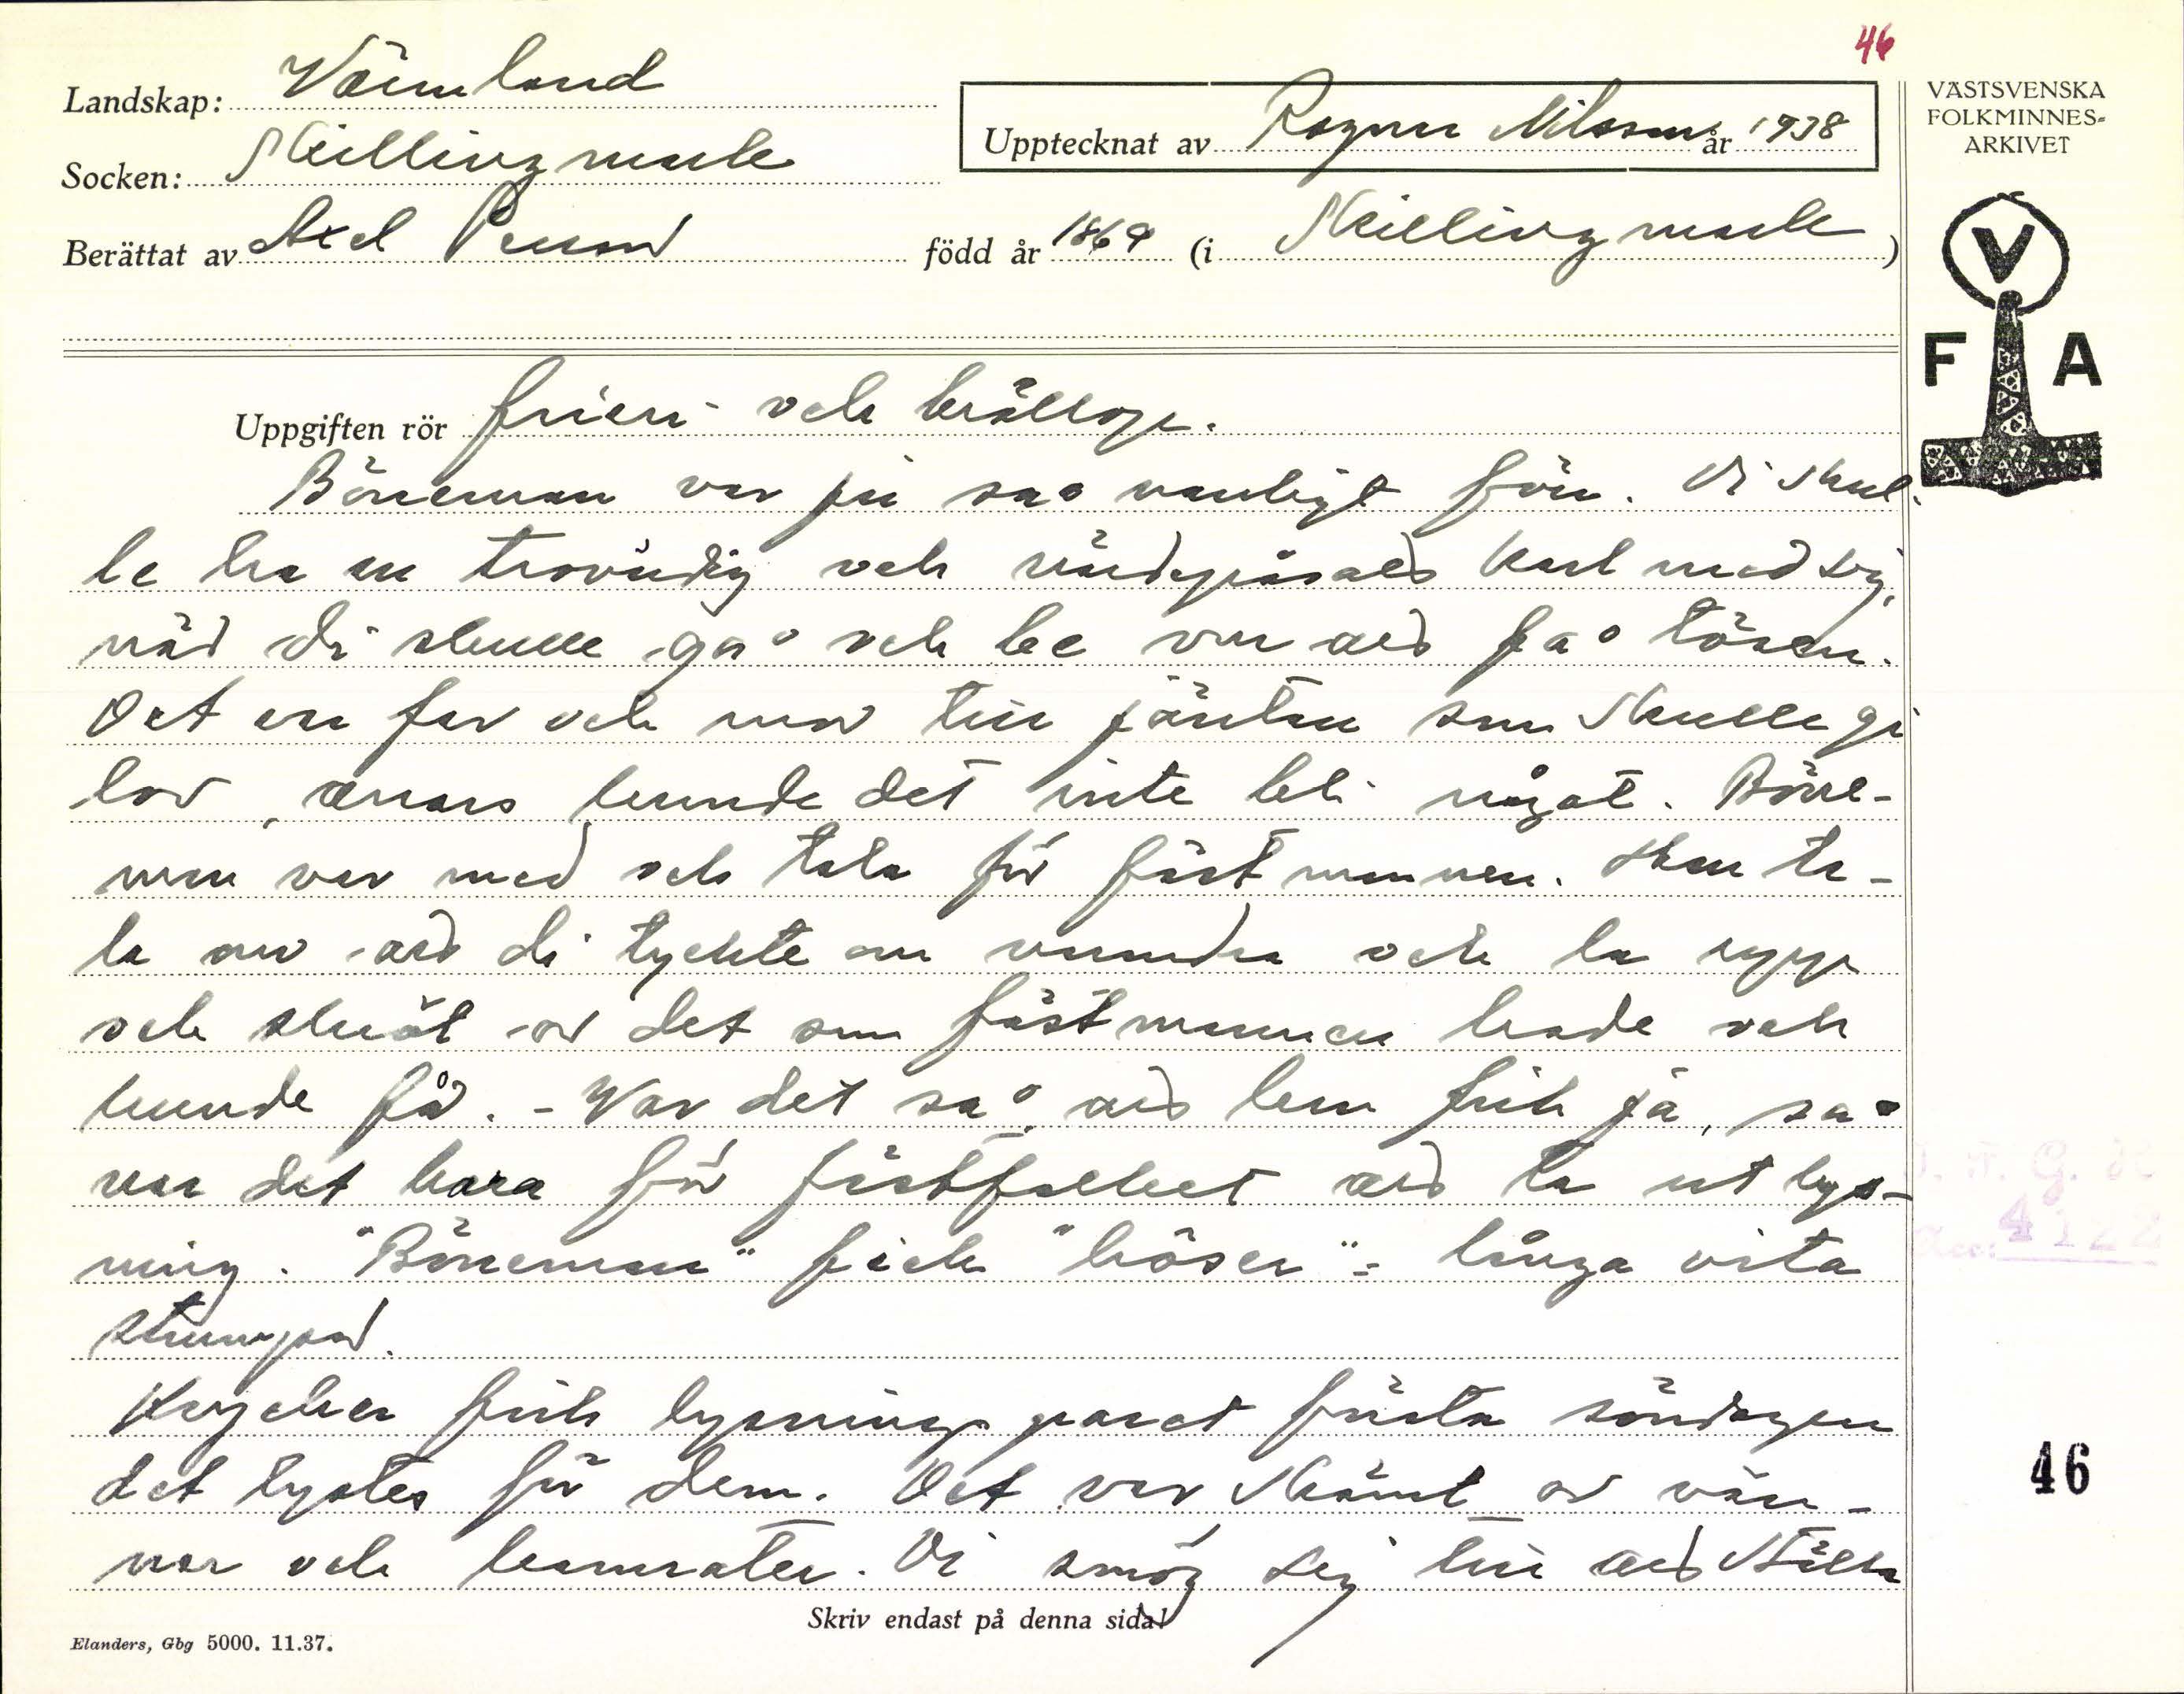 46
Landskap: Värmland
Socken: Skillingmark
Berättat av Axel Persson född år 1869 (i Skillingmark)
Upptecknat av Ragnar Nilsson år 1938
VÄSTSVENSKA
FOLKMINNES-
ARKIVET
V
F A
Uppgiften rör frieri och bröllop.
Böneman var ju så vanligt förr. Di skul-
le ha en trovärdig och vördepåsald karl med sig,
när di skulle gå och be om ad få tösen.
Det va far och mor till jäntan som skulle ge
lov, annars kunde det inte bli något. Böne-
man var med och tala för fästmannen. Han ta-
la om ad di tyckte om varandra och la upp
och skröt av det som fästmannen hade och
kunde få. - Var det så, ad han fick ja, så
var det bara för fästfolket ad ta ut lys-
ning. "Böneman" fick "höser" = långa vita
strumpor.
Krycker fick lysningsparet första söndagen
det lystes för dem. Det var skämt av vän-
ner och kamrater. Di smög sig till ad ställa
Skriv endast på denna sida!
Elanders, Gbg 5000. 11.37.
4122
46